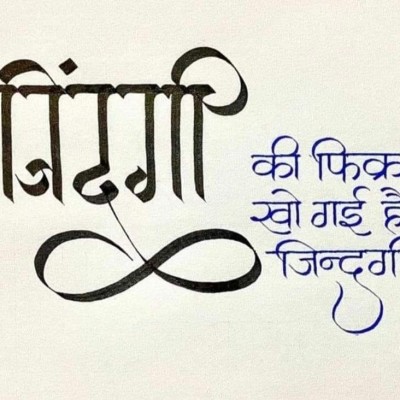 जिंदगी
की फिक्र
खो गई है
जिन्दगी